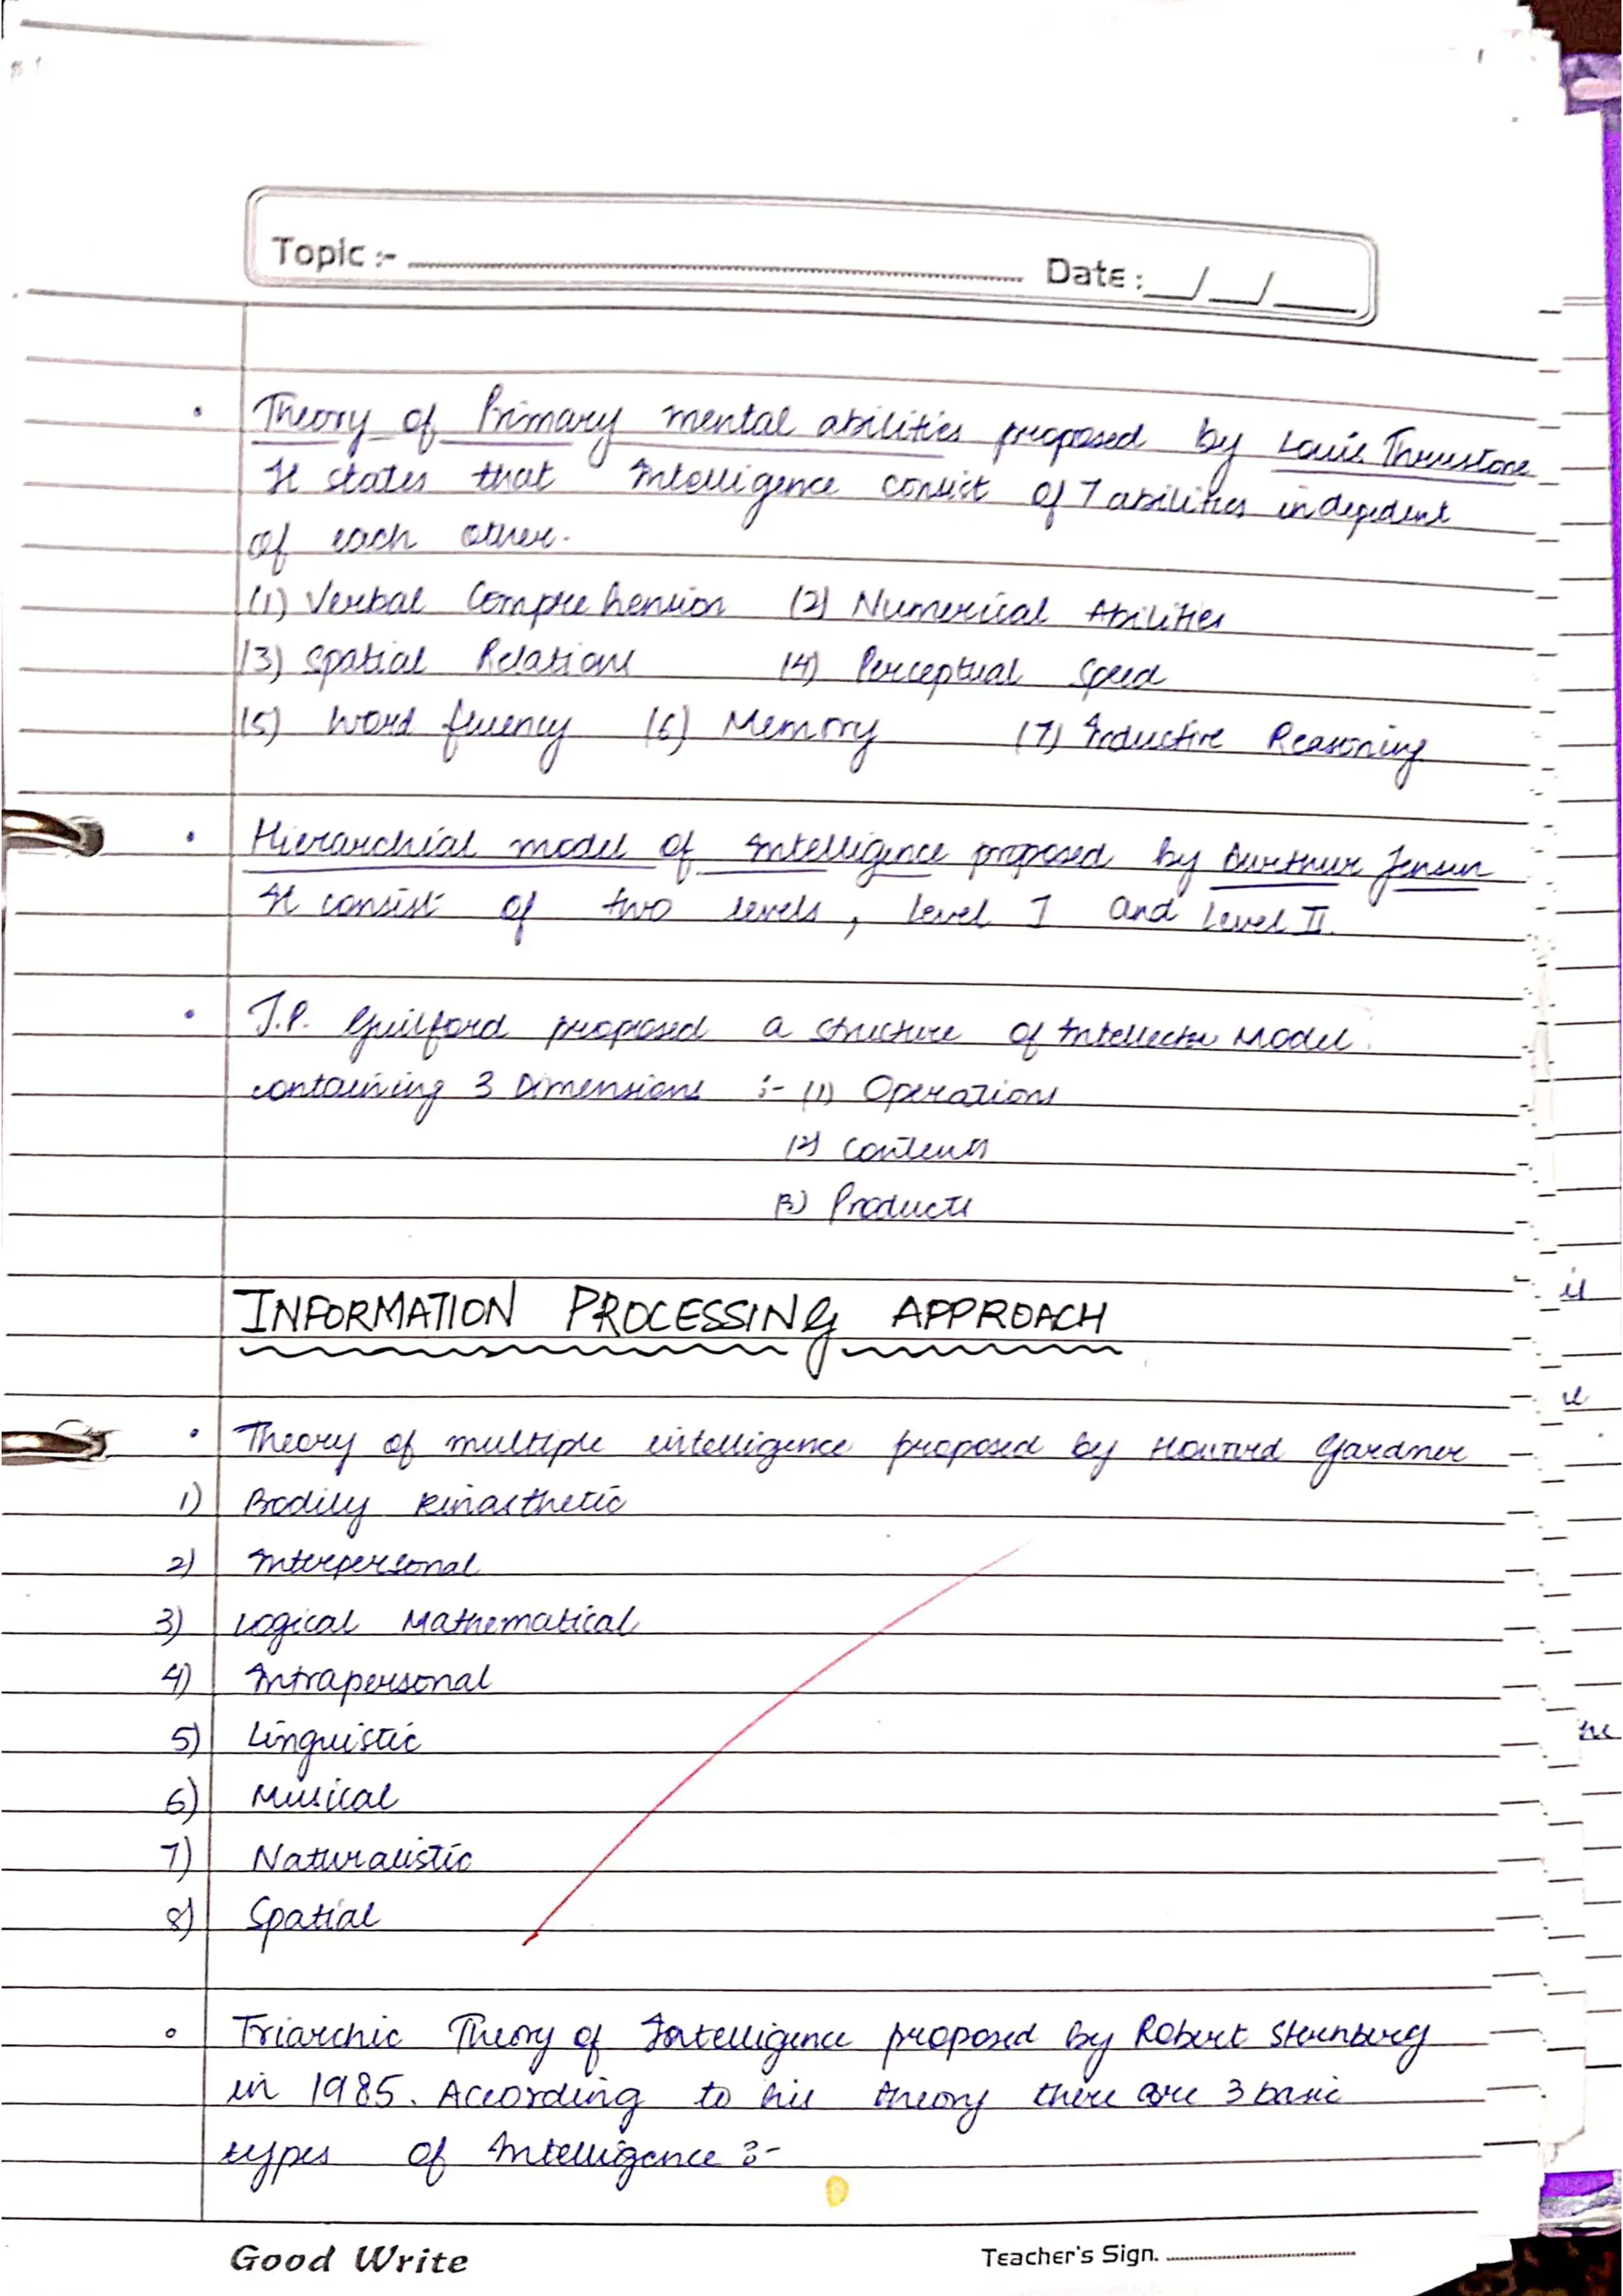 Topic :- Date : / /
• Theory of Primary mental abilities proposed by Louis Thurstone
It states that Intelligence consist of 7 abilities indepedent
of each other.
(1) Verbal Comprehension (2) Numerical Abilities
(3) Spatial Relations (4) Perceptual Speed
(5) Word fluency (6) Memory (7) Inductive Reasoning
• Hierarchial model of Intelligence proposed by Aurthur Jensen
It consist of two levels, level I and Level II.
• J.P. Guilford proposed a structure of Intellect Model
containing 3 Dimensions :- (1) Operations
(2) Contents
(3) Products
INFORMATION PROCESSING APPROACH
• Theory of multiple intelligence proposed by Howard Gardner
1) Bodily Kinasthetic
2) Interpersonal
3) Logical Mathematical
4) Intrapersonal
5) Linguistic
6) Musical
7) Naturalistic
8) Spatial
• Triarchic Theory of Intelligence proposed by Robert Sternberg
in 1985. According to his theory there are 3 basic
types of Intelligence :-
Good Write Teacher's Sign.